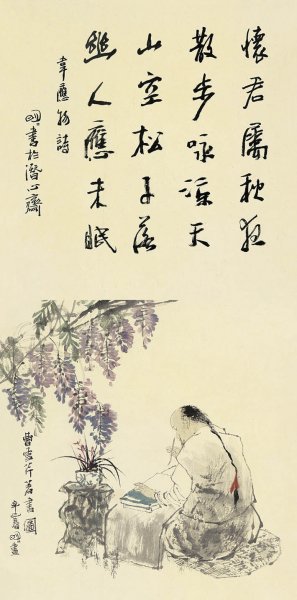 懷君屬秋夜
散步咏涼天
山空松子落
幽人應未眠
韋應物詩
明書於潛心齋
曹雪芹著書圖
明畫